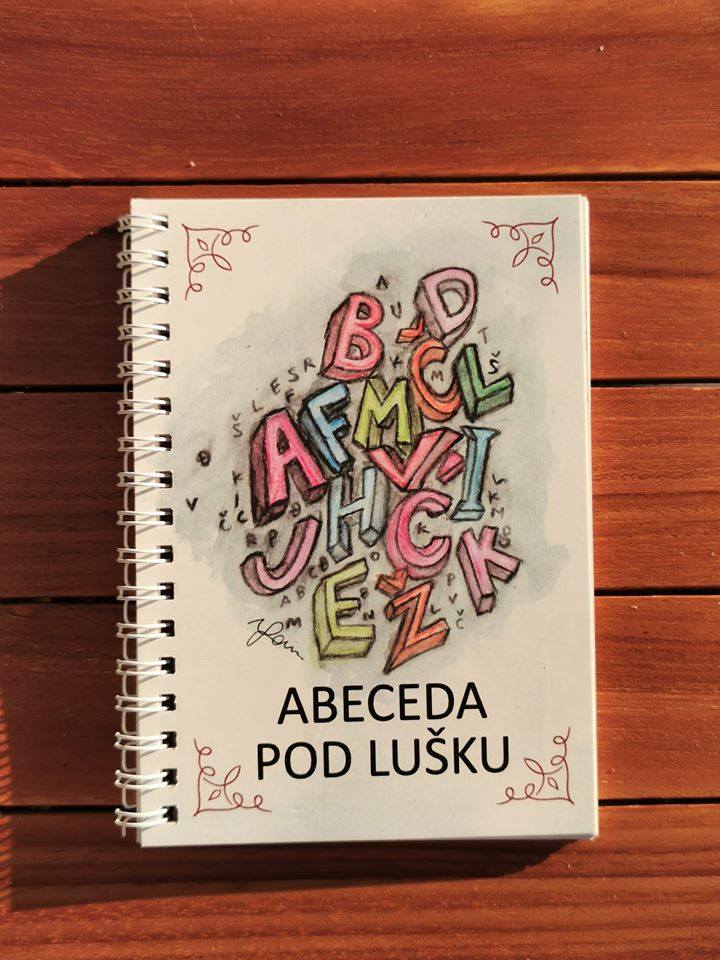 B D
Č L
A F M V I
J H C K
E Ž
ABECEDA
POD LUŠKU